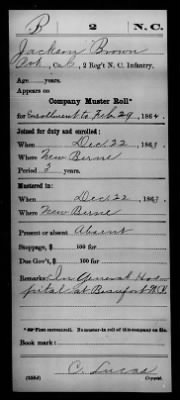 B 2 N.C.
Jackson Brown
Co. C, 2 Reg't N. C. Infantry.
Age years.
Appears on
Company Muster Roll*
for Enrollment to Feb 29, 1864.
Joined for duty and enrolled:
When Dec. 22, 1863.
Where New Berne
Period 3 years.
Mustered in:
When Dec 22, 1863.
Where New Berne
Present or absent Absent
Stoppage, $ 100 for
Due Gov't, $ 100 for
Remarks: In General Hos-
pital at Beaufort N.C.
*First mustered. No muster-in roll of this company on file.
Book mark:
C. Lucas
Copyist.